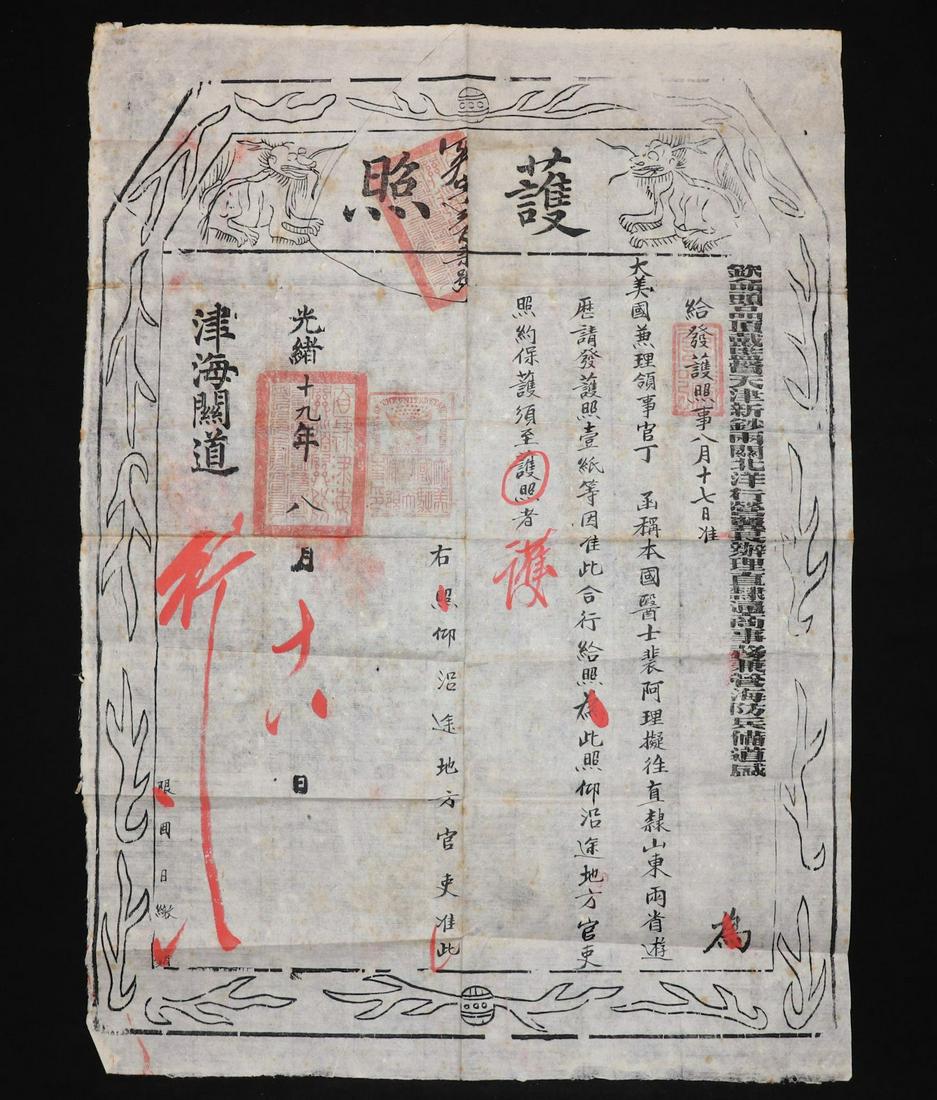 護照
欽命頭品頂戴監督天津新鈔兩關北洋行營翼長辦理直隸通商事務兼管海防兵備道盛
為
給發護照事八月十七日准
大美國兼理領事官丁 函稱本國醫士裴阿理擬往直隸山東兩省遊
歷請發護照壹紙等因准此合行給照為此照仰沿途地方官吏
照約保護須至護照者
護
右照仰沿途地方官吏准此
光緒十九年八月十八日
津海關道
行
限 回日繳